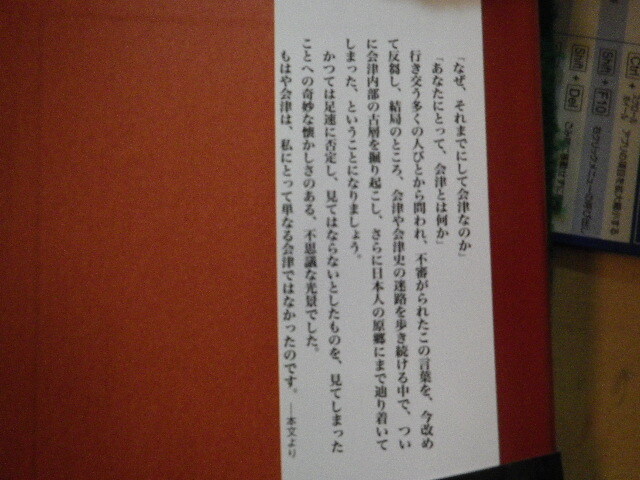 「なぜ、それまでにして会津なのか」
「あなたにとって、会津とは何か」
行き交う多くの人びとから問われ、不審がられたこの言葉を、今改め
て反芻し、結局のところ、会津や会津史の迷路を歩き続ける中で、つい
に会津内部の古層を掘り起こし、さらに日本人の原郷にまで辿り着いて
しまった、ということになりましょう。
かつては足速に否定し、見てはならないとしたものを、見てしまった
ことへの奇妙な懐かしさのある、不思議な光景でした。
もはや会津は、私にとって単なる会津ではなかったのです。 ―本文より
Shift + F10
Shift + Del